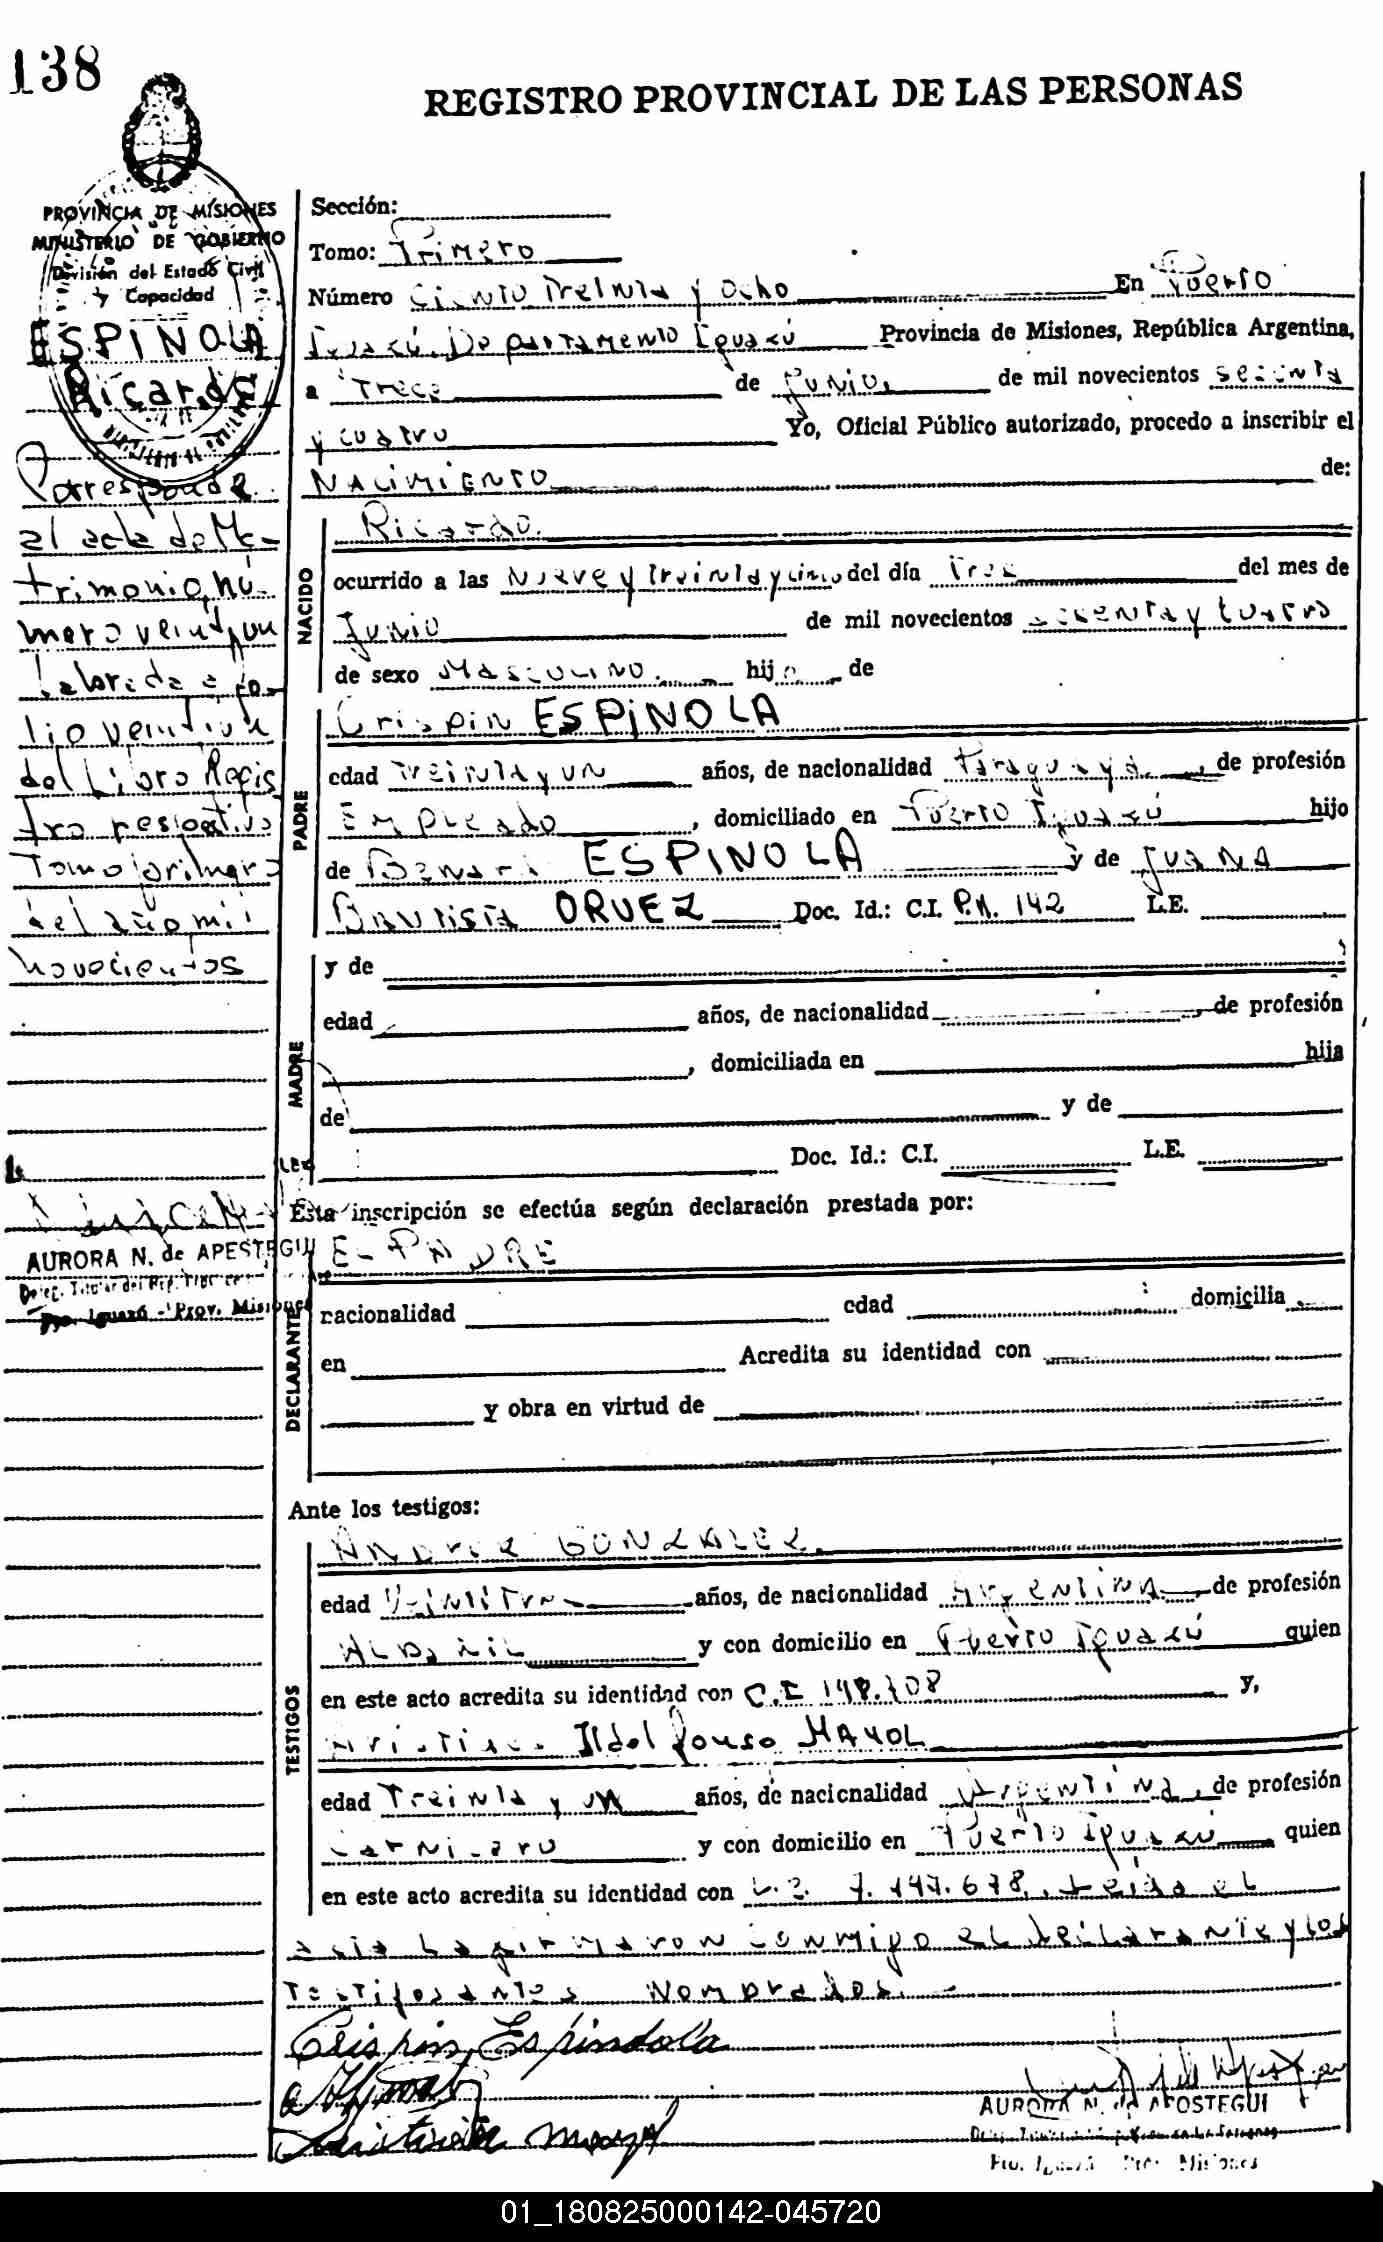 138
REGISTRO PROVINCIAL DE LAS PERSONAS
PROVINCIA DE MISIONES
MINISTERIO DE GOBIERNO
División del Estado Civil
y Capacidad
ESPINOLA
Ricardo
Corresponde
al acta de Ma-
trimonio, nú-
mero veintiun
labrada a fo-
lio veintiun
del Libro Regis
tro respectivo
Tomo primero
del año mil
novecientos
AURORA N. de APESTEGUI
Pto. Iguazú - Prov. Misiones
Sección:
Tomo: Primero
Número Ciento Treinta y Ocho En Puerto
Iguazú. Departamento Iguazú Provincia de Misiones, República Argentina,
a Trece de Junio de mil novecientos sesenta
y cuatro Yo, Oficial Público autorizado, procedo a inscribir el
Nacimiento de:
NACIDO
Ricardo.
ocurrido a las Nueve y treinta y cinco del día Tres del mes de
Junio de mil novecientos sesenta y cuatro
de sexo Masculino hijo de
PADRE
Crispin ESPINOLA
edad Treinta y un años, de nacionalidad Paraguaya, de profesión
Empleado, domiciliado en Puerto Iguazú hijo
de ESPINOLA y de Juana
Bautista ORUEZ Doc. Id.: C.I. P.N. 142 L.E.
MADRE
y de
edad años, de nacionalidad, de profesión
, domiciliada en hija
de y de
Doc. Id.: C.I. L.E.
Esta inscripción se efectúa según declaración prestada por:
DECLARANTE
EL PADRE
nacionalidad edad domicilia
en Acredita su identidad con
y obra en virtud de
Ante los testigos:
TESTIGOS
GONZALEZ.
edad Veintitres años, de nacionalidad Argentina, de profesión
Albañil y con domicilio en Puerto Iguazú quien
en este acto acredita su identidad con C.I 148.708 y,
Ildelfonso MAYOL
edad Treinta y un años, de nacionalidad Argentina, de profesión
Carnicero y con domicilio en Puerto Iguazú quien
en este acto acredita su identidad con L.E. 7.147.678, Leída el
acta la firmaron conmigo el declarante y los
testigos antes nombrados. -
Crispin Espindola
AURORA N. de APOSTEGUI
Pto. Iguazú Prov. Misiones
01_180825000142-045720